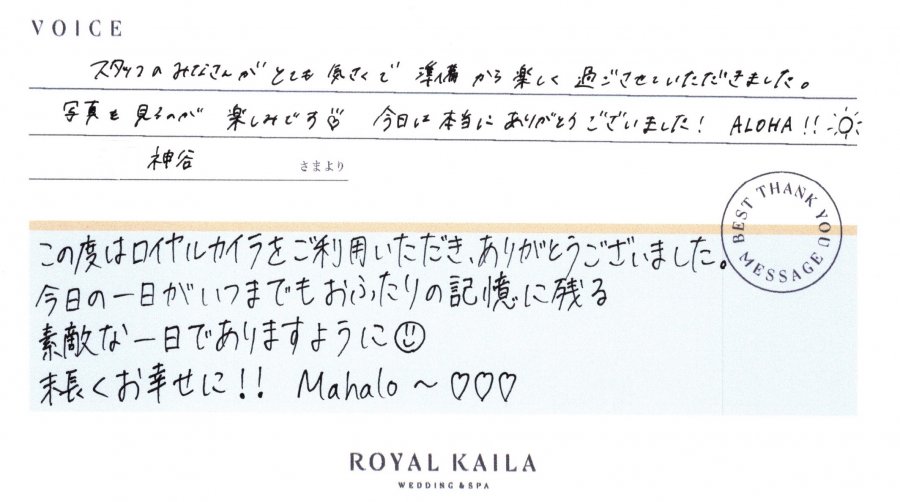 VOICE
スタッフのみなさんがとても気さくで 準備から楽しく過ごさせていただきました。
写真も見るのが 楽しみです 今日は本当にありがとうございました! ALOHA!!
神谷 さまより
BEST THANK YOU MESSAGE
この度はロイヤルカイラをご利用いただき、ありがとうございました。
今日の一日がいつまでもおふたりの記憶に残る
素敵な一日でありますように
末長くお幸せに!! Mahalo~♡♡♡
ROYAL KAILA
WEDDING & SPA